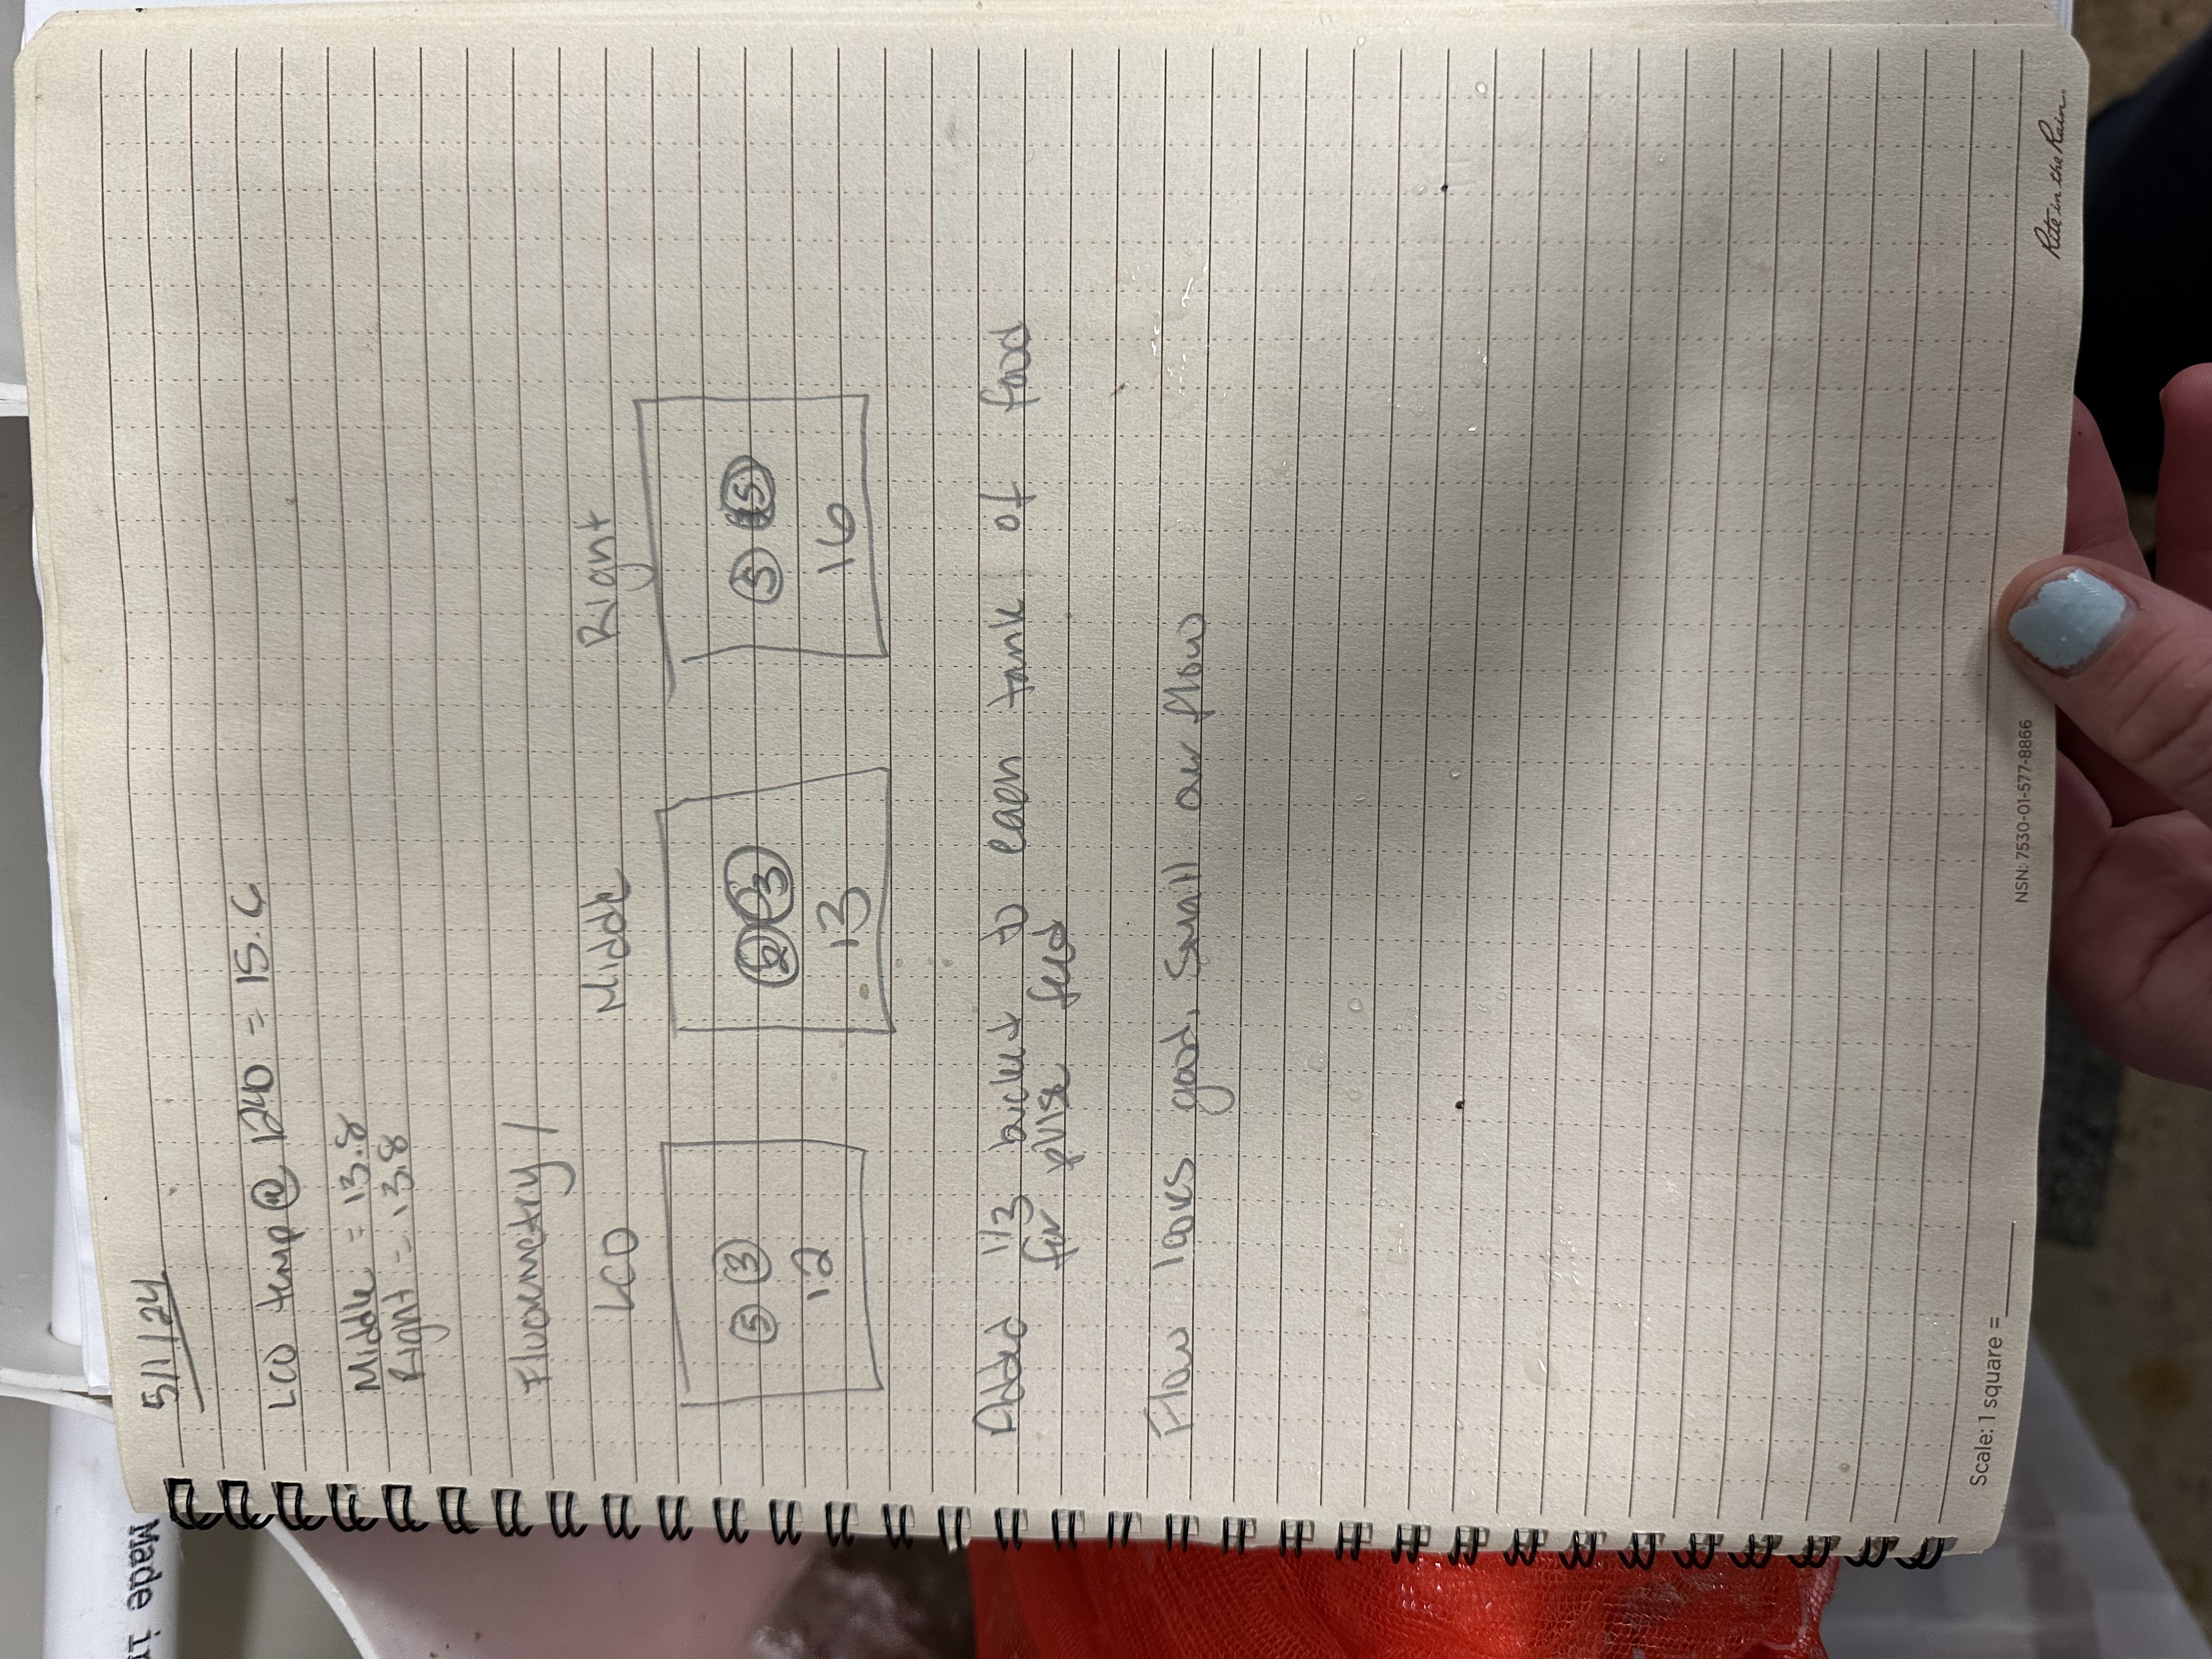 Made in
5/1/24
LCO temp @ 1240 = 15.6
Middle = 13.8
Right = 13.8
Fluorometry /
LCO Middle Right
5 3 3 5
12 13 16
Added 1/3 bucket to each tank of food
for pulse feed
Flow looks good. Small air flow
Scale: 1 square =______
NSN: 7530-01-577-8866
Rite in the Rain